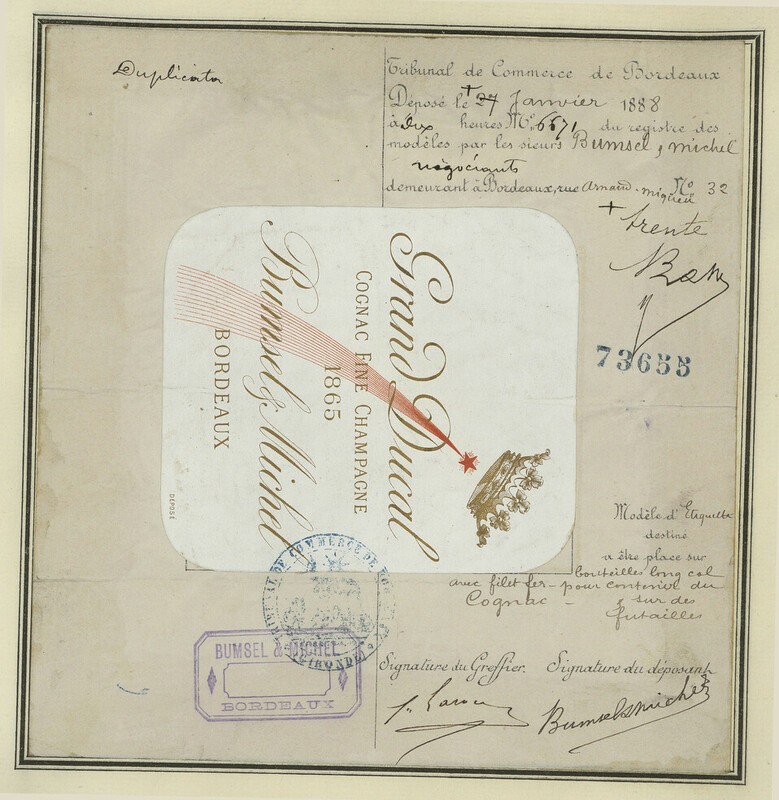 Duplicata
Tribunal de Commerce de Bordeaux
Déposé le + 27 Janvier 1888
à dix heures Nº 6671 du registre des
modèles par les sieurs Bumsel & Michel
négociants
demeurant à Bordeaux, rue Arnaud-Miqueu Nº 32
+ trente
73655
Grand Ducal
COGNAC FINE CHAMPAGNE
1865
Bumsel & Michel
BORDEAUX
DÉPOSÉ
Modèle d'Etiquette
destiné
a être place sur
bouteilles long col
avec filet fer - pour contenir du
Cognac - sur des
futailles
TRIBUNAL DE COMMERCE DE BORDEAUX
(GIRONDE)
BUMSEL & MICHEL
BORDEAUX
Signature du Greffier. Signature du déposant
Bumsel & Michel